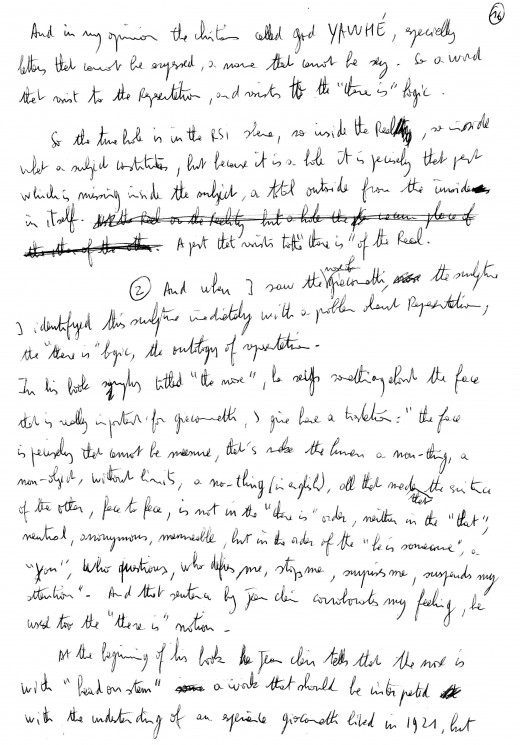 16
And in my opinion the christian called god YAWHÉ, especially
letters that cannot be expressed, a name that cannot be say. So a word
that resist to the Representation, and resists to the "there is" logic.
So the true hole is in the RSI scheme, so inside the Reality, so inside
what a subject constitutes, but because it is a hole it is precisely that part
which is missing inside the subject, a total outside from the inside
in itself. A part that resists to the "there is" of the Real.
② And when I saw the nose of giacometti, the sculpture
I identifyed this sculpture imediately with a problem about Representation,
the "there is" logic, the ontology of representation.
In his book titled "the nose", he says something about the face
that is really important for giacometti, I give here a translation: "the face
is precisely that cannot be measure, that's make the human a non-thing, a
non-object, without limits, a no-thing (in english), all that made that the existence
of the other, face to face, is not in the "there is" order, neither in the "that",
neutral, anonymous, measurable, but in the order of the "he is someone", a
"you", who questions, who defies me, stops me, surprises me, suspends my
attention". And that sentence by Jean clair corroborates my feeling, he
used too the "there is" notion.
At the beginning of his book Jean clair tells that the nose is
with "head on stem" a work that should be interpreted
with the understanding of an experience giacometti lived in 1921, but